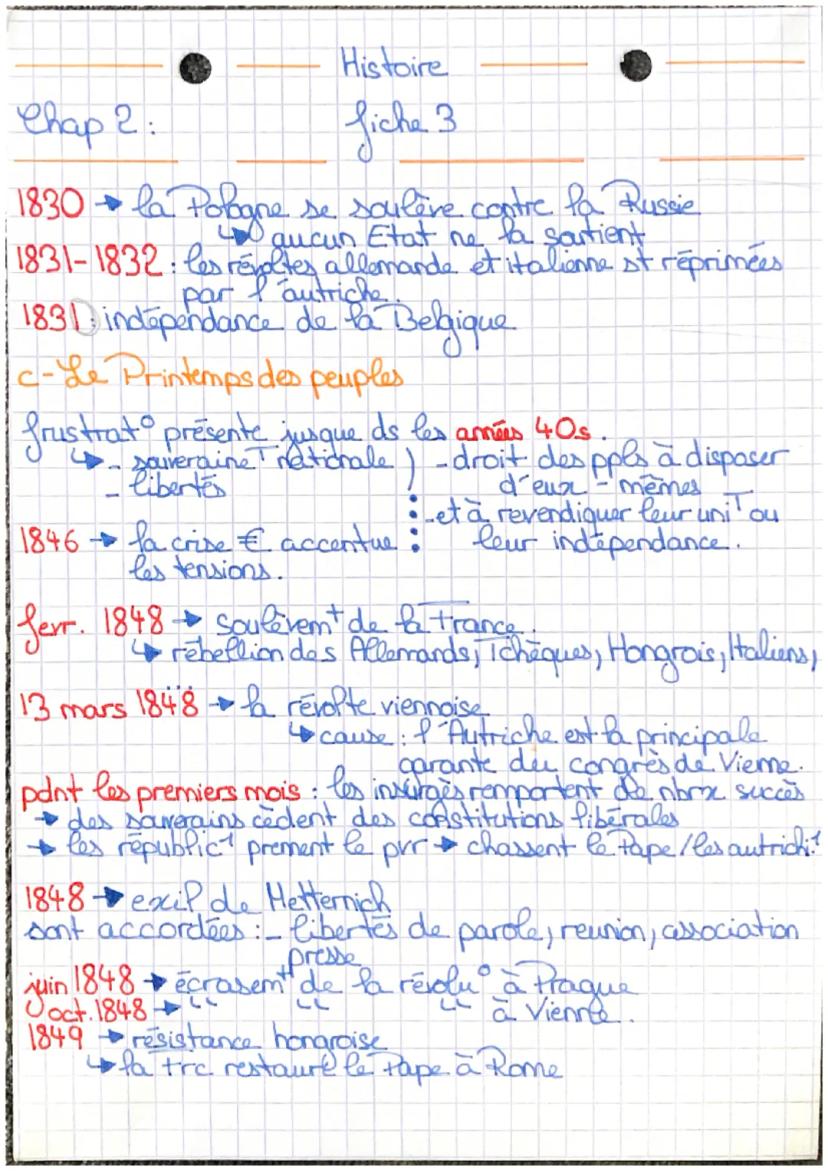 Histoire
Chap 2 : fiche 3
1830 → la Pologne se soulève contre la Russie
↳ aucun Etat ne la soutient
1831-1832 : les révoltes allemande et italienne st réprimées
par l'autriche.
1831 : indépendance de la Belgique
c - Le Printemps des peuples
frustrat° présente jusque ds les années 40s.
↳ - souveraineT nationale ) - droit des ppls à disposer
- libertés d'eux - mêmes
- et à revendiquer leur uniT ou
1846 → la crise € accentue leur indépendance.
les tensions.
fevr. 1848 → soulèvemt de la France.
↳ rébellion des Allemands, Tchèques, Hongrois, Italiens,
...
13 mars 1848 → la révolte viennoise
↳ cause : l'Autriche est la principale
garante du congrès de Vienne.
pdnt les premiers mois : les insurgés remportent de nbrx succès
→ des souverains cèdent des constitutions libérales
→ les républic^s prennent le pvr → chassent le Pape / les autrich^s
1848 → exil de Metternich
sont accordées : - libertés de parole, reunion, association
presse
juin 1848 → écrasemt de la révolu° à Prague
oct. 1848 → " " " à Vienne.
1849 → résistance hongroise
↳ la Frc restaure le Pape à Rome